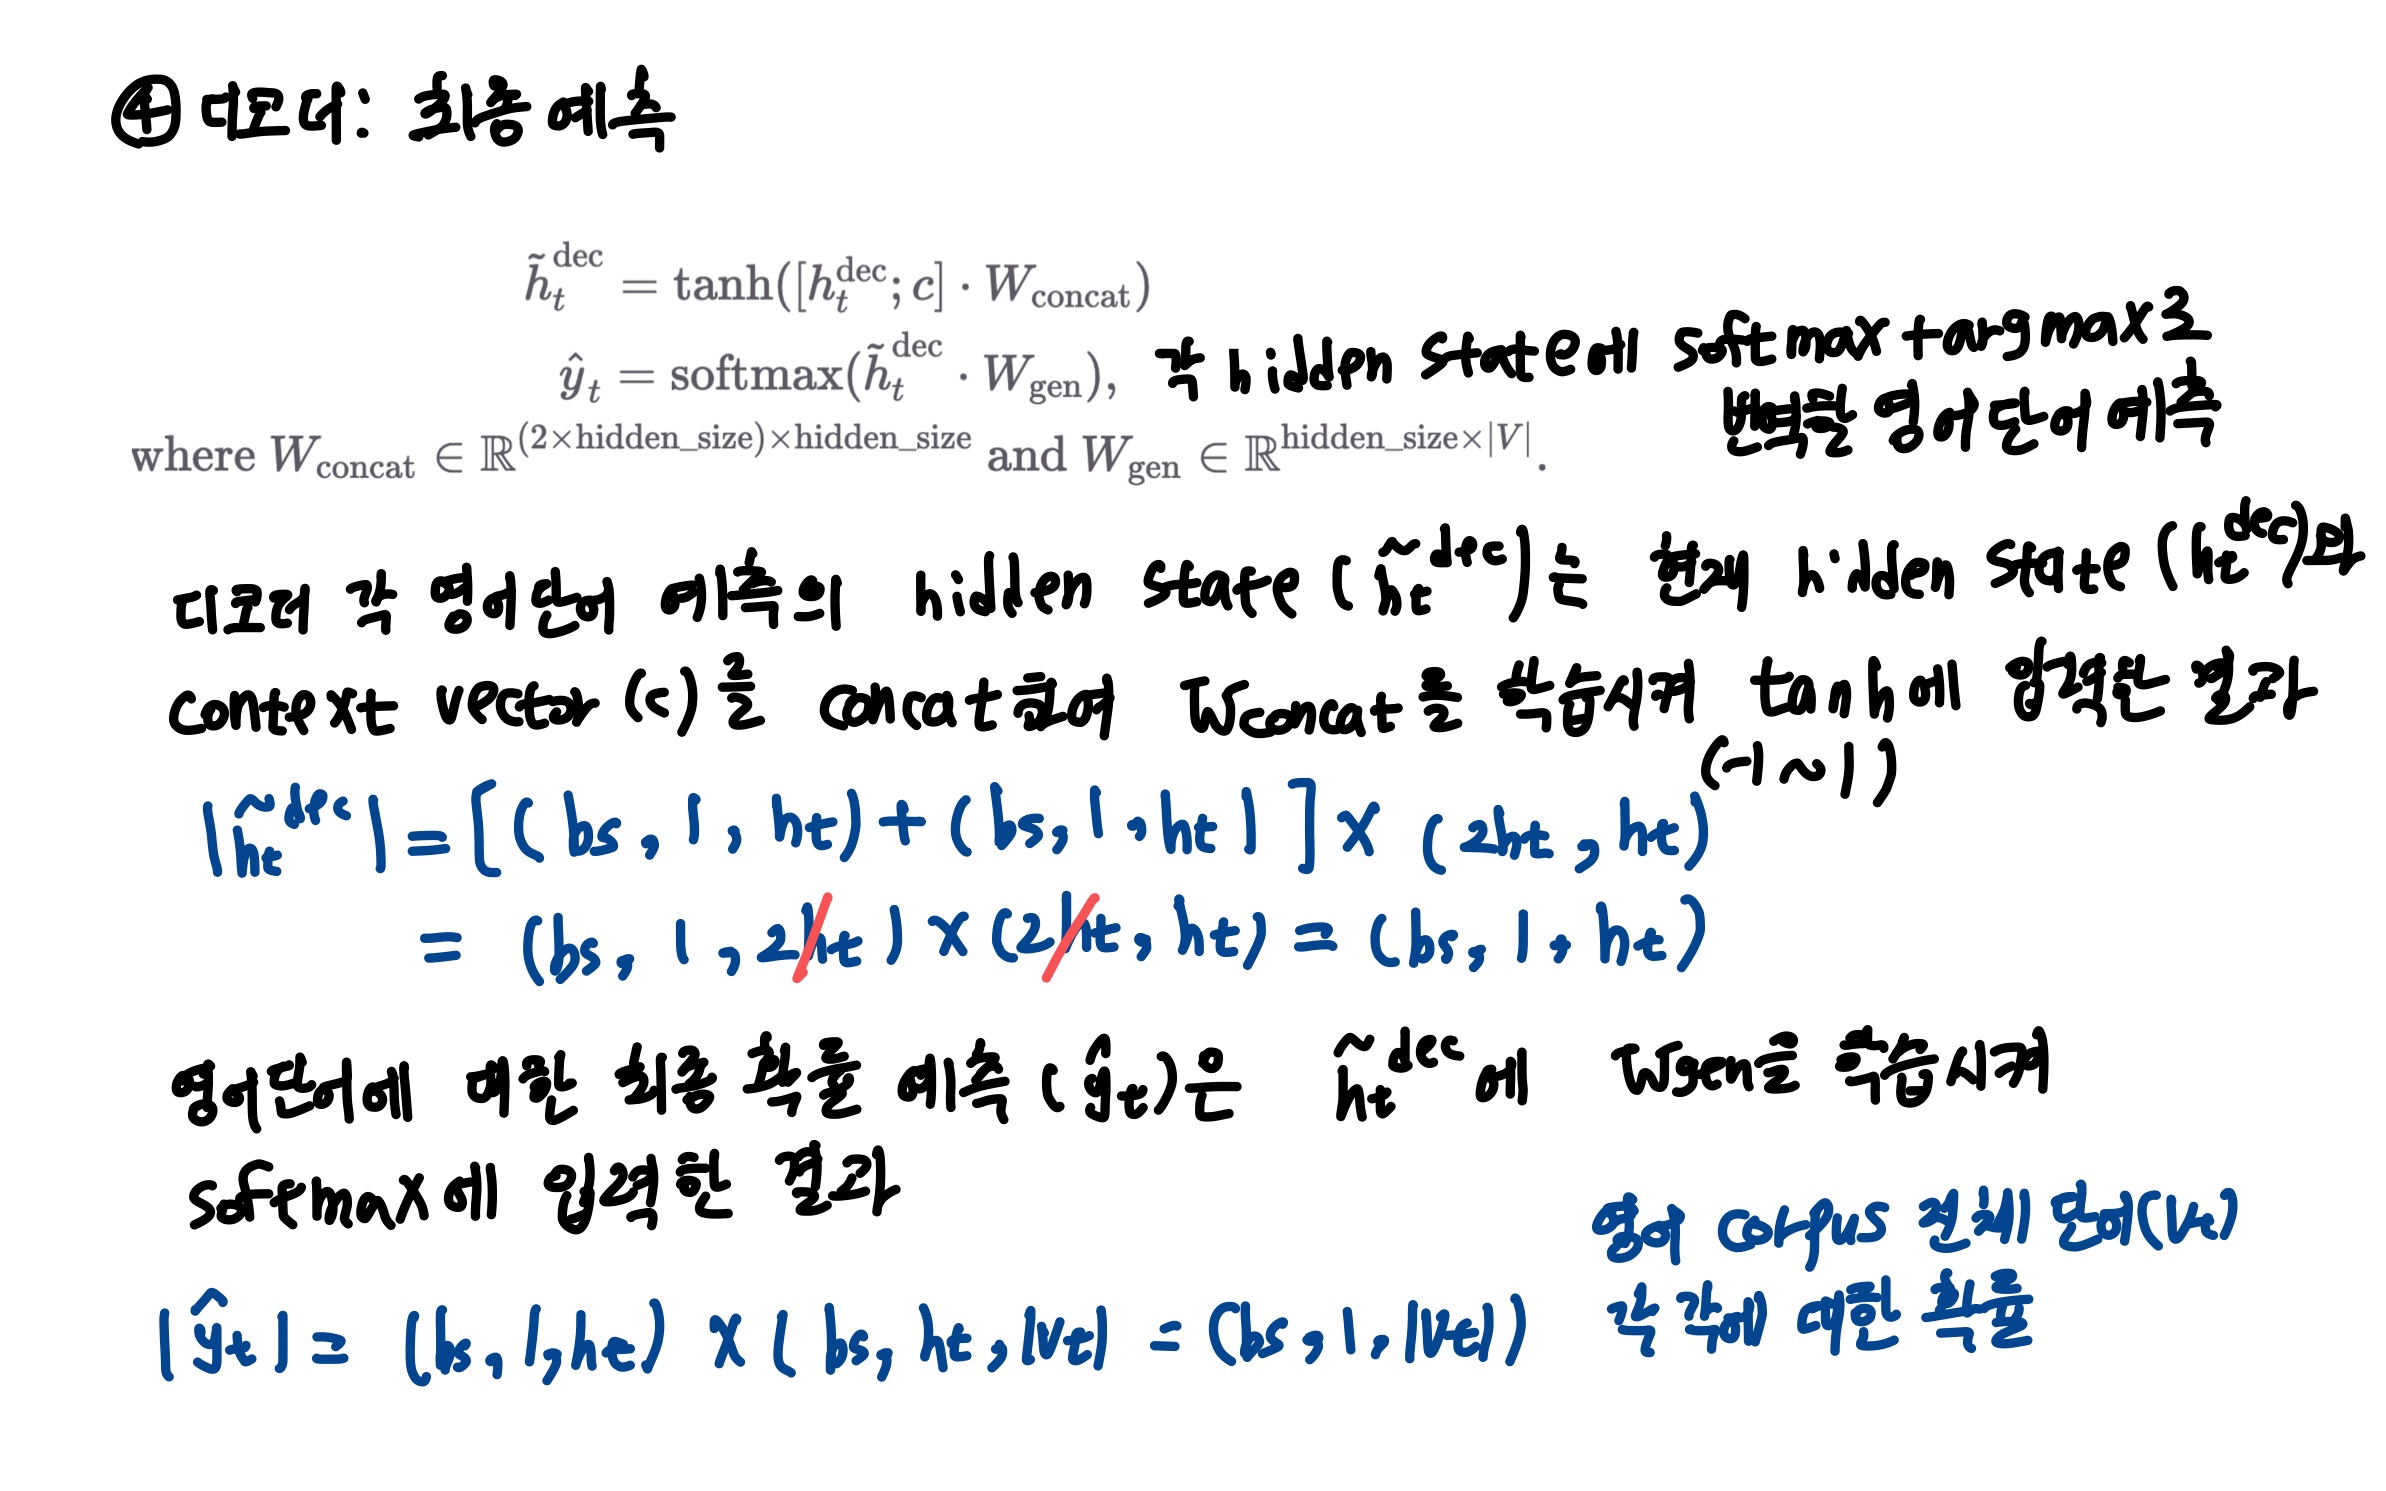 ④ 디코더: 최종 예측
h̃_t^dec = tanh([h_t^dec; c] · W_concat)
ŷ_t = softmax(h̃_t^dec · W_gen), 각 hidden state에 softmax+argmax로
번역할 영어 단어 예측
where W_concat ∈ ℝ^(2×hidden_size)×hidden_size and W_gen ∈ ℝ^hidden_size×|V|.
디코더 각 영어단어 예측의 hidden state (h̃t^dec)는 현재 hidden state (ht^dec)와
context vector (c)를 concat하여 Wconcat을 학습시켜 tanh에 입력한 결과
(-1~1)
|h̃t^dec| = [(bs, 1, ht) + (bs, 1, ht)] × (2ht, ht)
= (bs, 1, 2ht) × (2ht, ht) = (bs, 1, ht)
영어단어에 대한 최종 확률 예측 (ŷt)은 h̃t^dec에 Wgen을 학습시켜
softmax에 입력한 결과
영어 corpus 전체 단어(Vt)
각각에 대한 확률
|ŷt| = (bs, 1, ht) × (bs, ht, |Vt|) = (bs, 1, |Vt|)